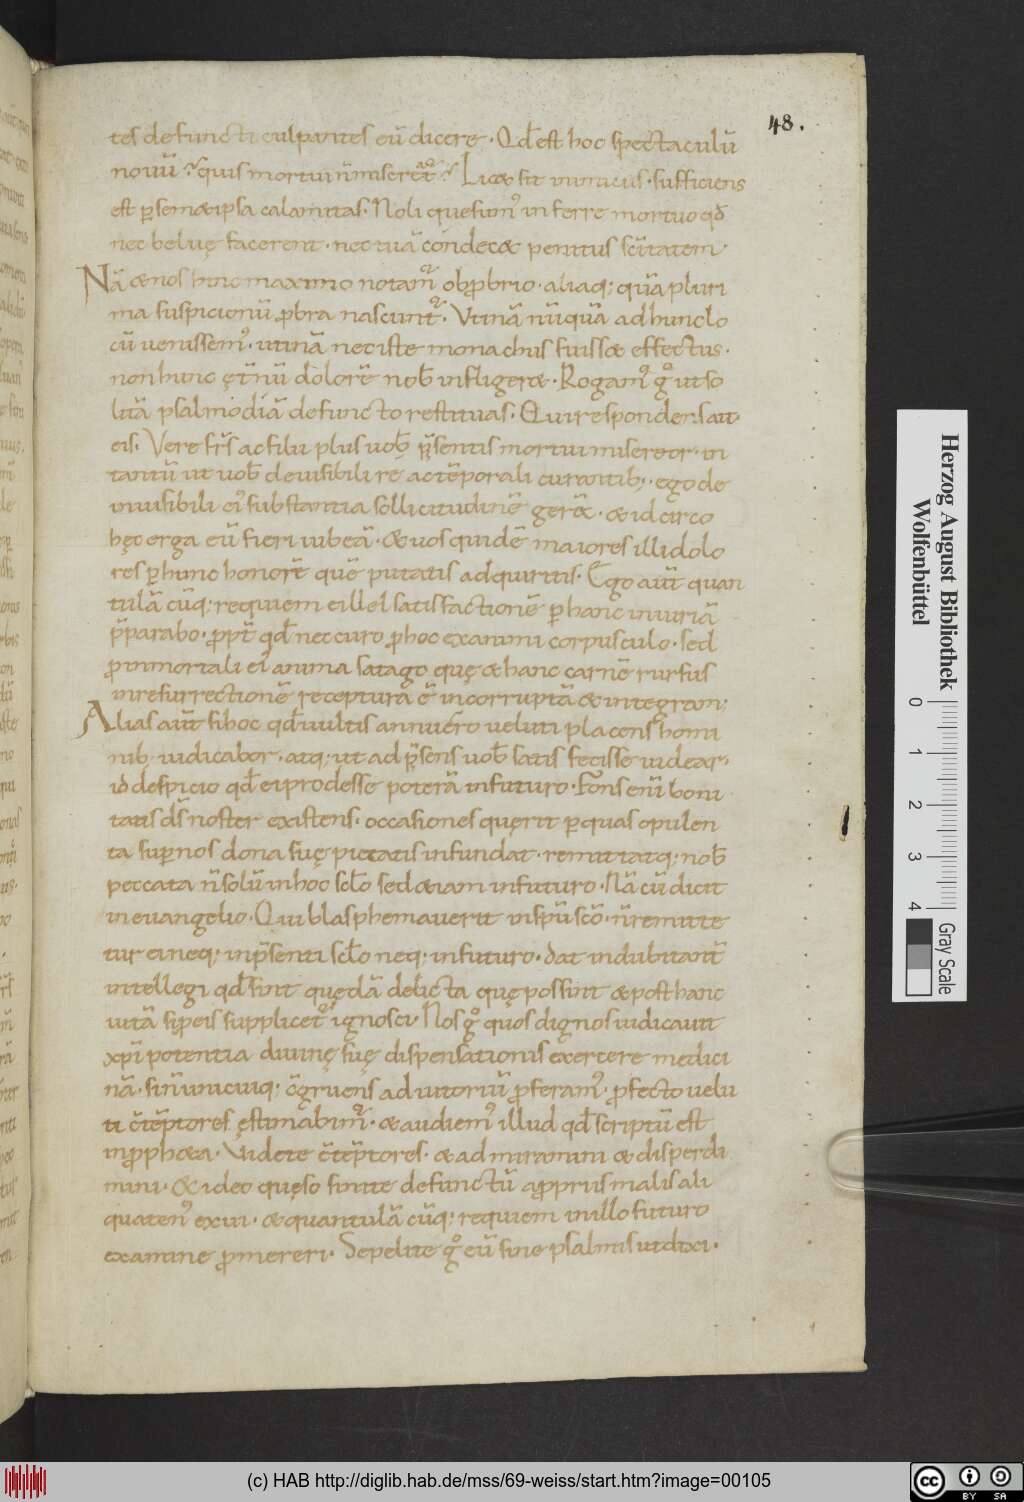 48.
tes defuncti culpantes eū dicere · Qđ est hoc spectaculū
nouū? quis mortui n̄ miseret̄? Licæ sit inimicus · sufficiens
est ꝑ semæipsa calamitas · Noli quesum᾽ inferre mortuo qđ
nec beluę facerent · nec tuā condecæ penitus sc̄itatem ·
Nā æ nos hinc maximo notam᾽ obꝓbrio · aliaq; quā pluri
ma suspicionū ꝓbra nascunt᾽ · Vtinā nūquā ad hunc lo
cū uenissem᾽ · utinā nec iste monachus fuissæ effectus ·
non hunc ęt̄nū dolorē nob̄ infligeræ · Rogam᾽ gͦ ut so
litā psalmodiā defuncto restituas · Qui respondens ait
eis · Vere fr̄s ac filii plus uob̄ p̄sentis mortui misereor · in
tantū ut uob̄ de uisibili re ac tēporali curantib; · ego de
inuisibili ei᾽ substantia sollicitudinē gerā · & idcirco
hęc erga eū fieri iubeā · & uos quidē maiores illi dolo
res ꝑ hunc honorē quē putatis adquiritis · Ego aūt quan
tulā cūq; requiem ei uel satisfactionē ꝑ hanc iniuriā
p̄parabo · ꝓpt̄ qđ nec curo ꝓ hoc exanimi corpusculo · sed
ꝓ inmortali ei᾽ anima satago quę & hanc carnē rursus
in resurrectionē receptura ē incorruptā & integram;
Alias aūt si hoc qđ uultis annuero ueluti placens homi
nib; iudicabor · atq; ut ad p̄sens uob̄ satis fecisse uidear ·
id despicio qđ ei prodesse poterā in futuro · Fons enī boni
tatis dš noster existens · occasiones quęrit ꝑ quas opulen
ta suꝑ nos dona suę pietatis infundat · remittatq; nob̄
peccata n̄ solū in hoc scło sed æiam in futuro · Nā cū dicit
in euangelio · Qui blasphemauerit in spm̄ scō · n̄ remitte
tur ei neq; in p̄senti scło neq; in futuro · dat indubitant̄
intellegi qđ sint quędā delicta quę possint & post hanc
uitā si ꝓ eis supplicet᾽ ignosci · Nos gͦ quos dignos iudicauit
xpi potentia diuinę suę dispensationis exercere medici
nā · si n̄ unicuiq; c̄gruens adiutoriū ꝓferam᾽ · ꝓfecto uelu
ti c̄tēptores ęstimabim᾽ · & audiem᾽ illud qđ scriptū est
in ꝓphæa · Videte c̄tēptores · & admiramini & disperdi
mini · & ideo quęso sinite defunctū a ꝓpriis malis ali
quaten᾽ exui · & quantulā cūq; requiem in illo futuro
examine ꝓmereri · Sepelite gͦ eū sine psalmis ut dixi ·
Herzog August Bibliothek
Wolfenbüttel
0 1 2 3 4
Gray Scale
(c) HAB http://diglib.hab.de/mss/69-weiss/start.htm?image=00105
cc BY SA